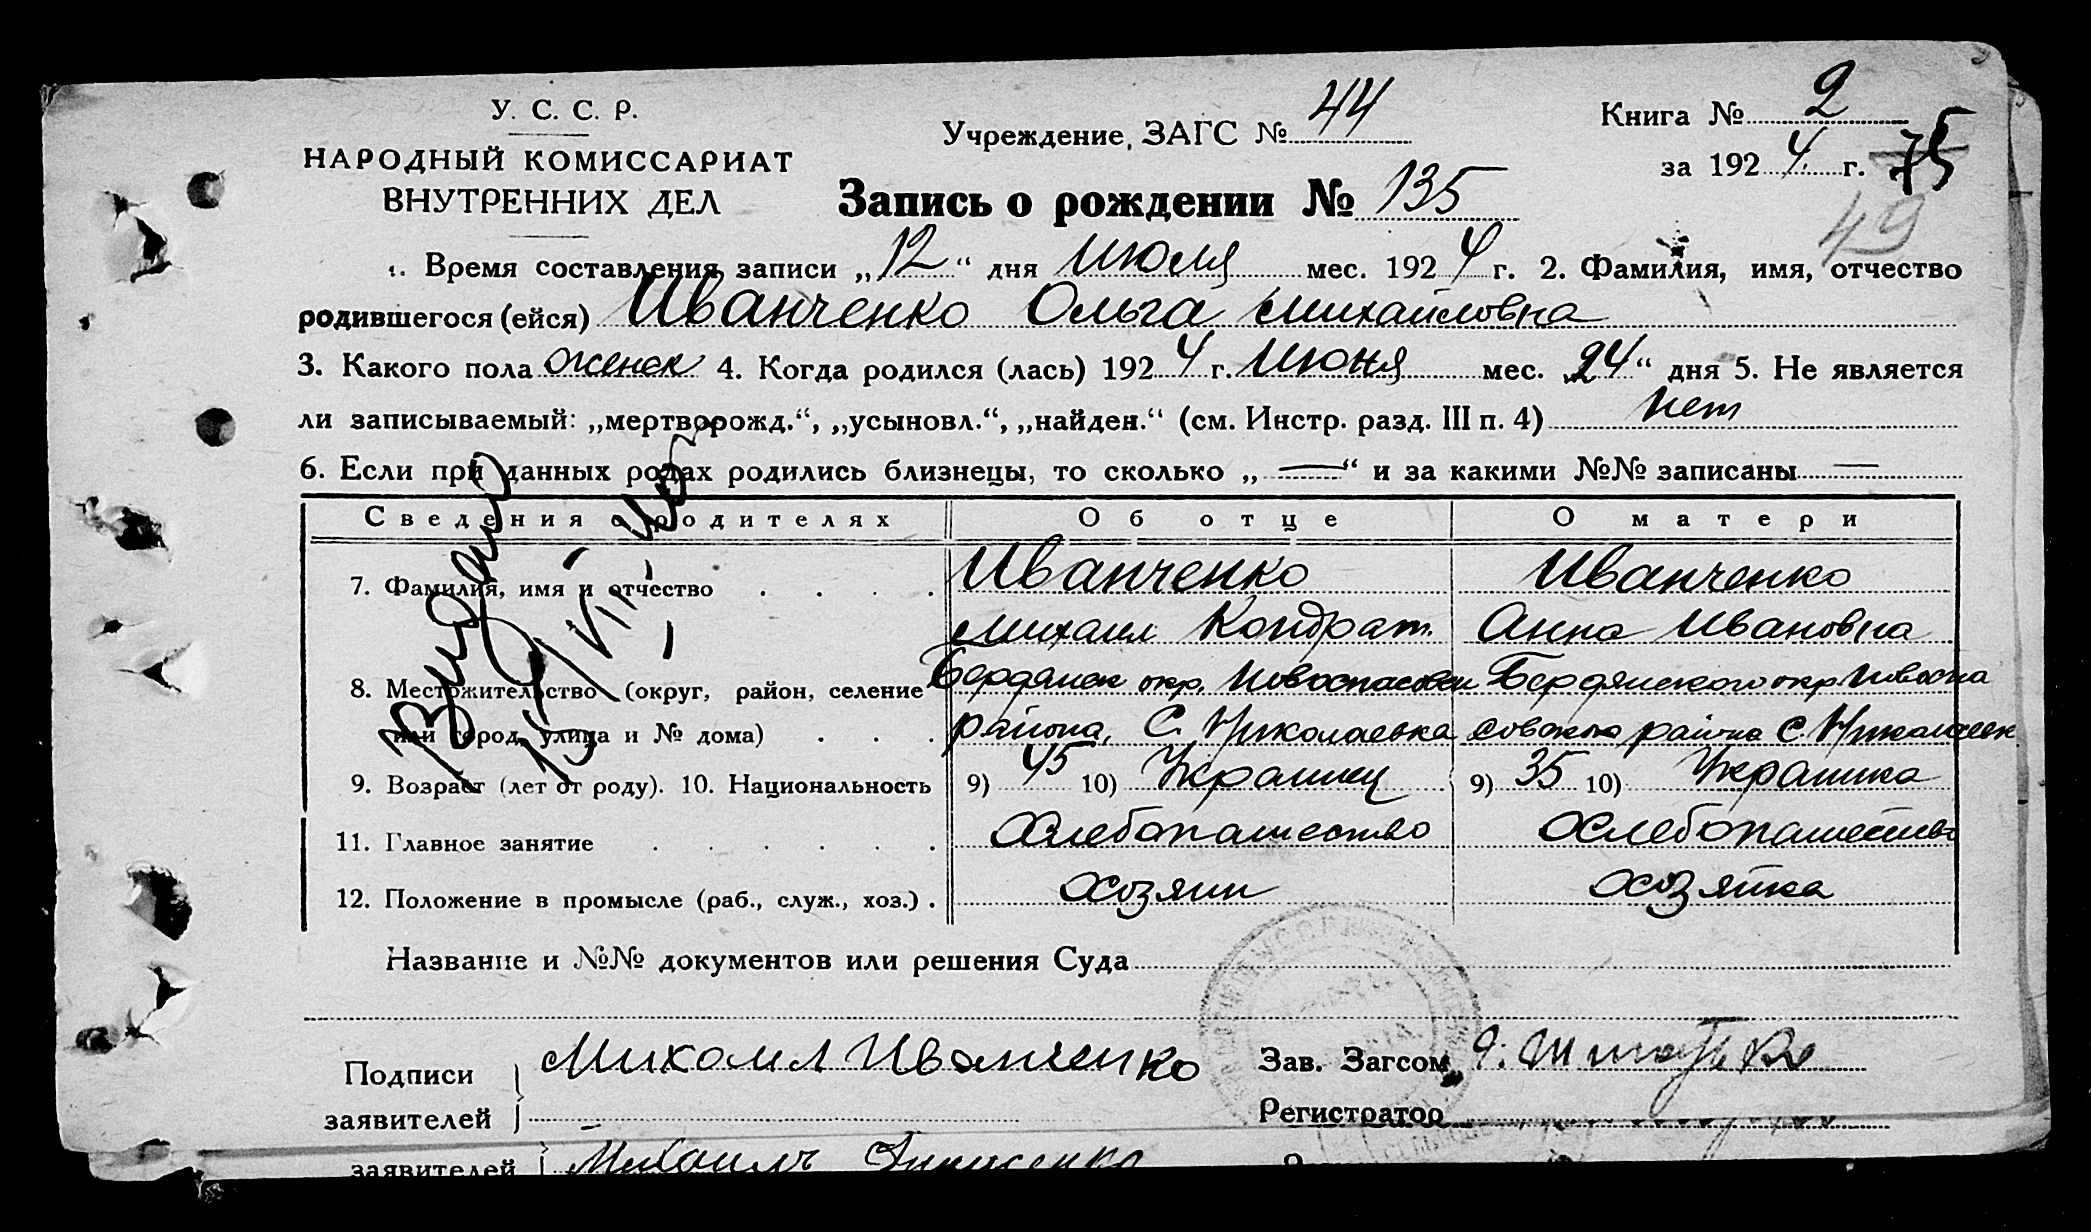 У. С. С. Р.
НАРОДНЫЙ КОМИССАРИАТ
ВНУТРЕННИХ ДЕЛ
Учреждение, ЗАГС № 44
Книга № 2
за 1924 г. 75
49
Запись о рождении № 135
1. Время составления записи „12“ дня Июля мес. 1924 г. 2. Фамилия, имя, отчество
родившегося (ейся) Иванченко Ольга Михайловна
3. Какого пола женск 4. Когда родился (лась) 1924 г. Июня мес. „24“ дня 5. Не является
ли записываемый: „мертворожд.“, „усыновл.“, „найден.“ (см. Инстр. разд. III п. 4) нет
6. Если при данных родах родились близнецы, то сколько „ — “ и за какими №№ записаны —
Сведения о родителях Об отце О матери
7. Фамилия, имя и отчество . . . . Иванченко Иванченко
Михаил Кондрат. Анна Ивановна
8. Местожительство (округ, район, селение Бердянск окр. Новоспасовск Бердянского окр Новоспа
или город, улица и № дома) . . . района, С. Николаевка совского района С. Николаевк
9. Возраст (лет от роду). 10. Национальность 9) 45 10) Украинец 9) 35 10) Украинка
11. Главное занятие . . . . . . Хлебопашество Хлебопашество
12. Положение в промысле (раб., служ., хоз.) . Хозяин Хозяйка
Название и №№ документов или решения Суда
Подписи Михаил Иванченко Зав. Загсом
заявителей Регистратор
заявителей Михаилъ